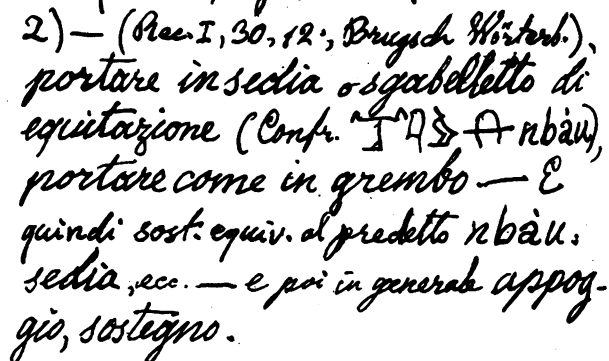 2) — (Rec. I, 30, 12:, Brugsch Wörterb.),
portare in sedia o sgabelletto di
equitazione (Confr. nbàu),
portare come in grembo — E
quindi sost. equiv. al predetto nbàu:
sedia, ecc. — e poi in generale appog-
gio, sostegno.